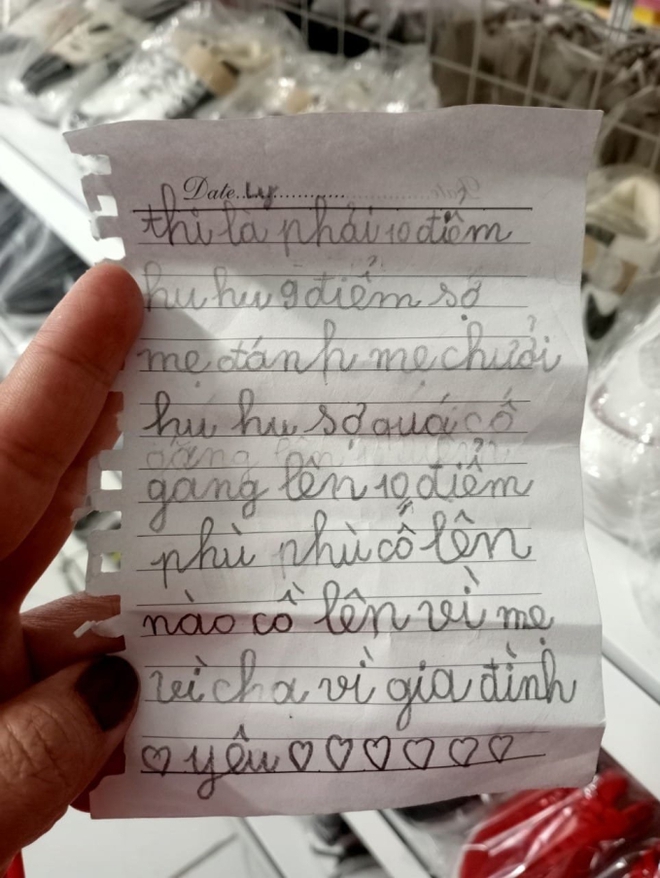 Date
thi là phải 10 điểm
hu hu 9 điểm sợ
mẹ đánh mẹ chưởi
hu hu sợ quá cố
gang lên 10 điểm
phù phù cố lên
nào cồ lên vì mẹ
vì cha vì gia đình
♡ yêu ♡ ♡ ♡ ♡ ♡ ♡